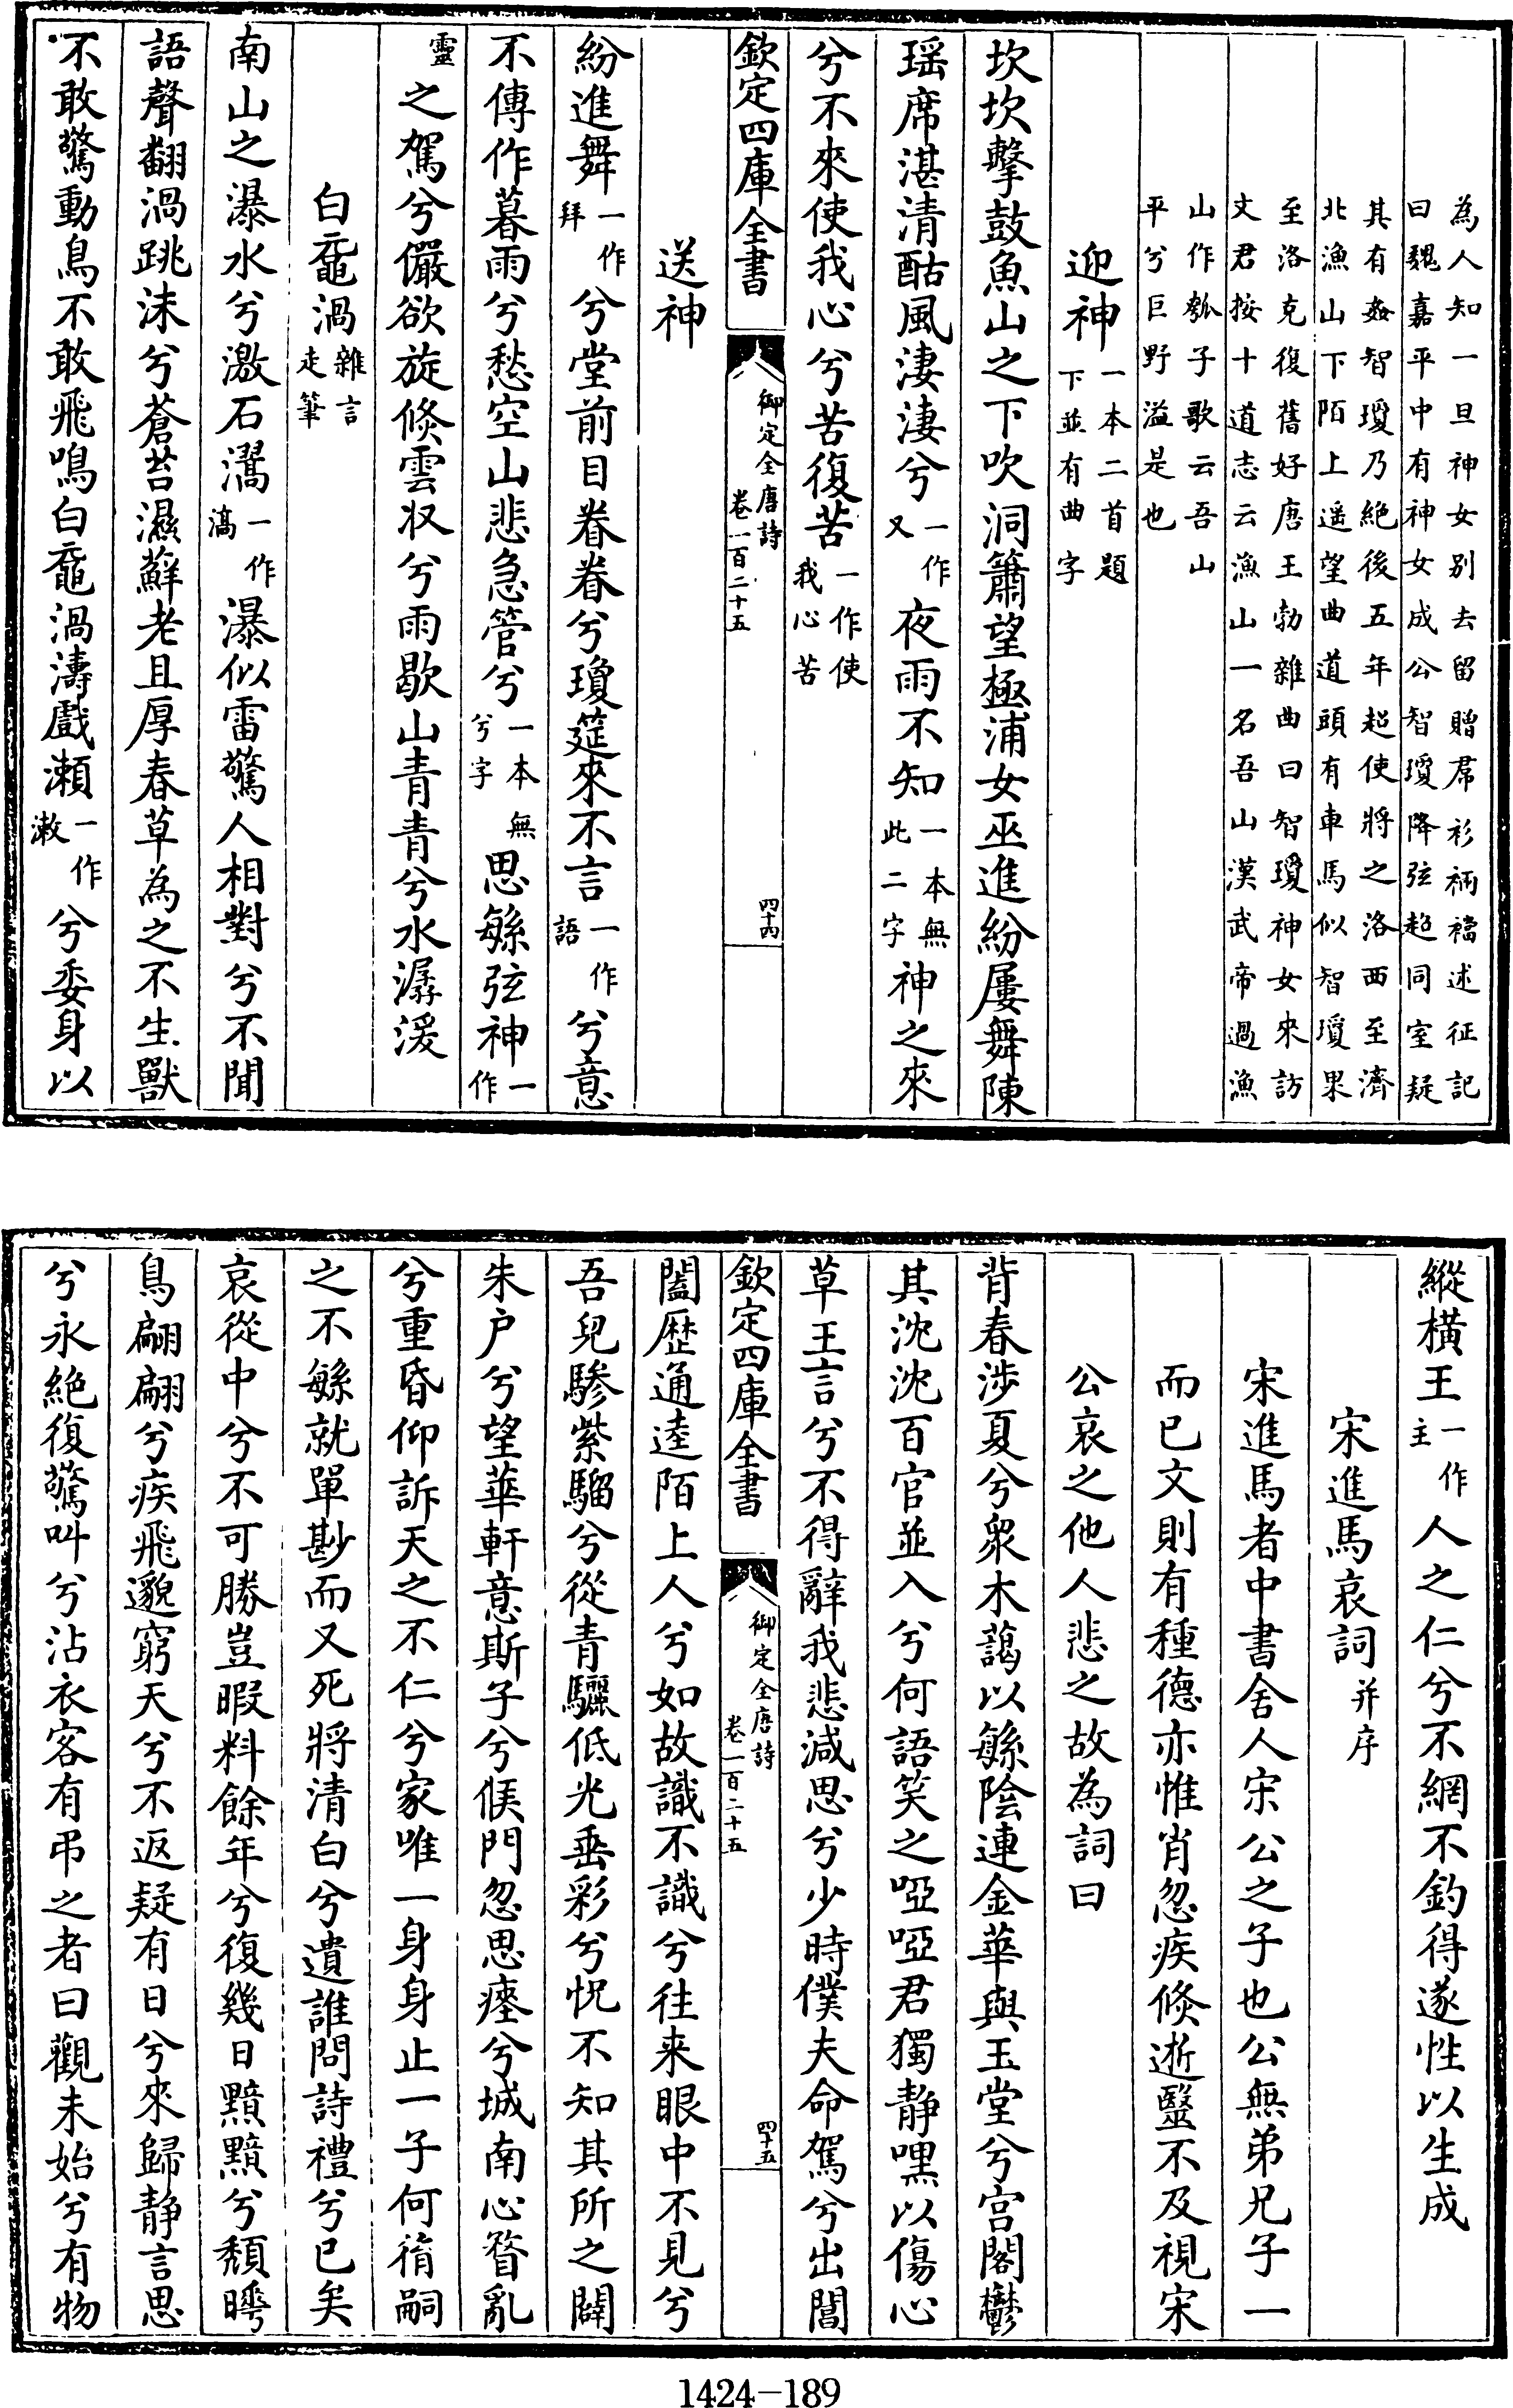 為人知一旦神女別去留贈裙衫裲襠述征記
曰魏嘉平中有神女成公智瓊降弦超同室疑
其有姦智瓊乃絶後五年超使將之洛西至濟
北漁山下陌上遥望曲道頭有車馬似智瓊果
至洛克復舊好唐王勃雜曲曰智瓊神女来訪
文君按十道志云漁山一名吾山漢武帝過漁
山作瓠子歌云吾山
平兮巨野溢是也
迎神一本二首題下並有曲字
坎坎擊鼓魚山之下吹洞簫望極浦女巫進紛屢舞陳
瑶席湛清酤風淒淒兮一作又夜雨不知一本無此二字神之來
兮不來使我心兮苦復苦一作使我心苦
欽定四庫全書
御定全唐詩
卷一百二十五
四十四
送神
紛進舞一作拜兮堂前目眷眷兮瓊筵來不言一作語兮意
不傳作暮雨兮愁空山悲急管兮一本無兮字思緐弦神一作
靈之駕兮儼欲旋倐雲収兮雨歇山青青兮水潺湲
白黿渦雜言走筆
南山之瀑水兮激石㵧一作滈瀑似雷驚人相對兮不聞
語聲翻渦跳沫兮蒼苔濕蘚老且厚春草為之不生獸
不敢驚動鳥不敢飛鳴白黿渦濤戲瀬一作漱兮委身以
縱橫王一作主人之仁兮不網不釣得遂性以生成
宋進馬哀詞并序
宋進馬者中書舍人宋公之子也公無弟兄子一
而已文則有種德亦惟肖忽疾倐逝毉不及視宋
公哀之他人悲之故為詞曰
背春涉夏兮衆木藹以緐陰連金華與玉堂兮宫閣鬱
其沈沈百官並入兮何語笑之啞啞君獨静嘿以傷心
草王言兮不得辭我悲減思兮少時僕夫命駕兮出閶
欽定四庫全書
御定全唐詩
卷一百二十五
四十五
闔歷通逵陌上人兮如故識不識兮往来眼中不見兮
吾兒驂紫騮兮從青驪低光垂彩兮怳不知其所之闢
朱户兮望華軒意斯子兮候門忽思瘞兮城南心瞀亂
兮重昏仰訴天之不仁兮家唯一身身止一子何㣥嗣
之不緐就單尠而又死將清白兮遺誰問詩禮兮已矣
哀從中兮不可勝豈暇料餘年兮復幾日黯黯兮頽曄
鳥翩翩兮疾飛邈窮天兮不返疑有日兮來歸静言思
兮永絶復驚叫兮沾衣客有弔之者曰觀未始兮有物
1424-189